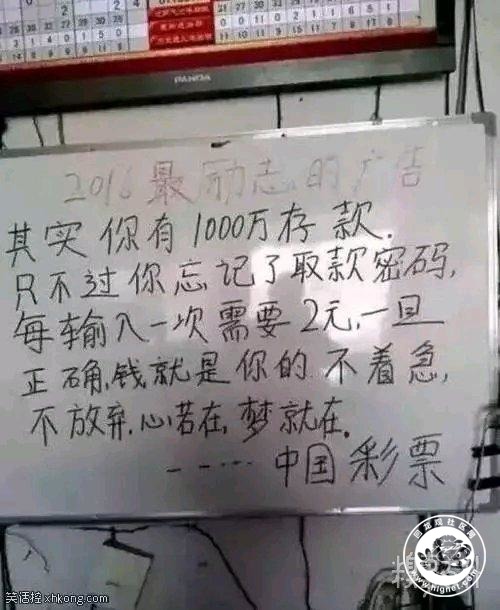 PANDA
2016最励志的广告
其实你有1000万存款.
只不过你忘记了取款密码,
每输入一次需要2元,一旦
正确,钱就是你的.不着急,
不放弃.心若在,梦就在.
-----中国彩票
笑话控 xhkong.com
www.hlgnet.com